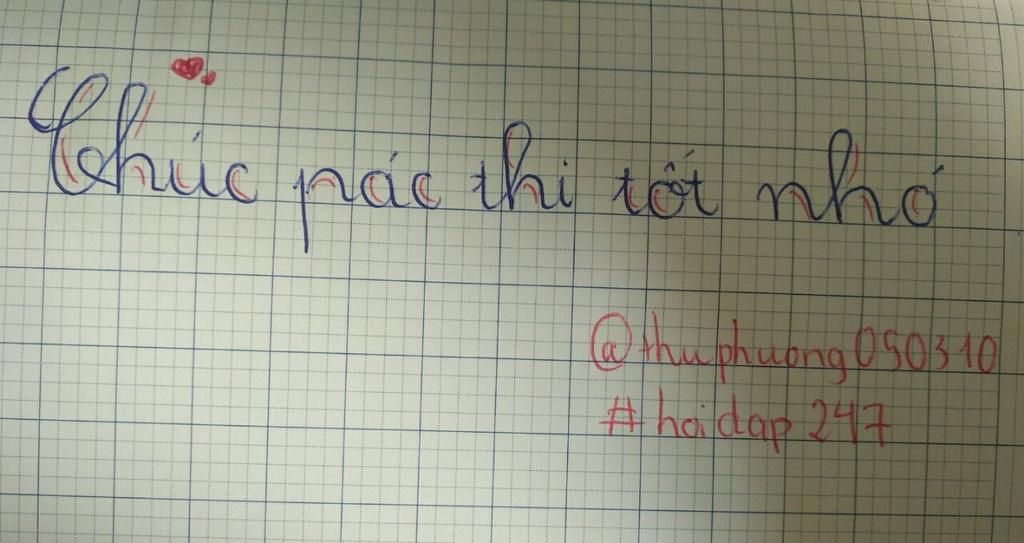 Chúc pác thi tốt nhó
@thuphuong050310
#hoidap247